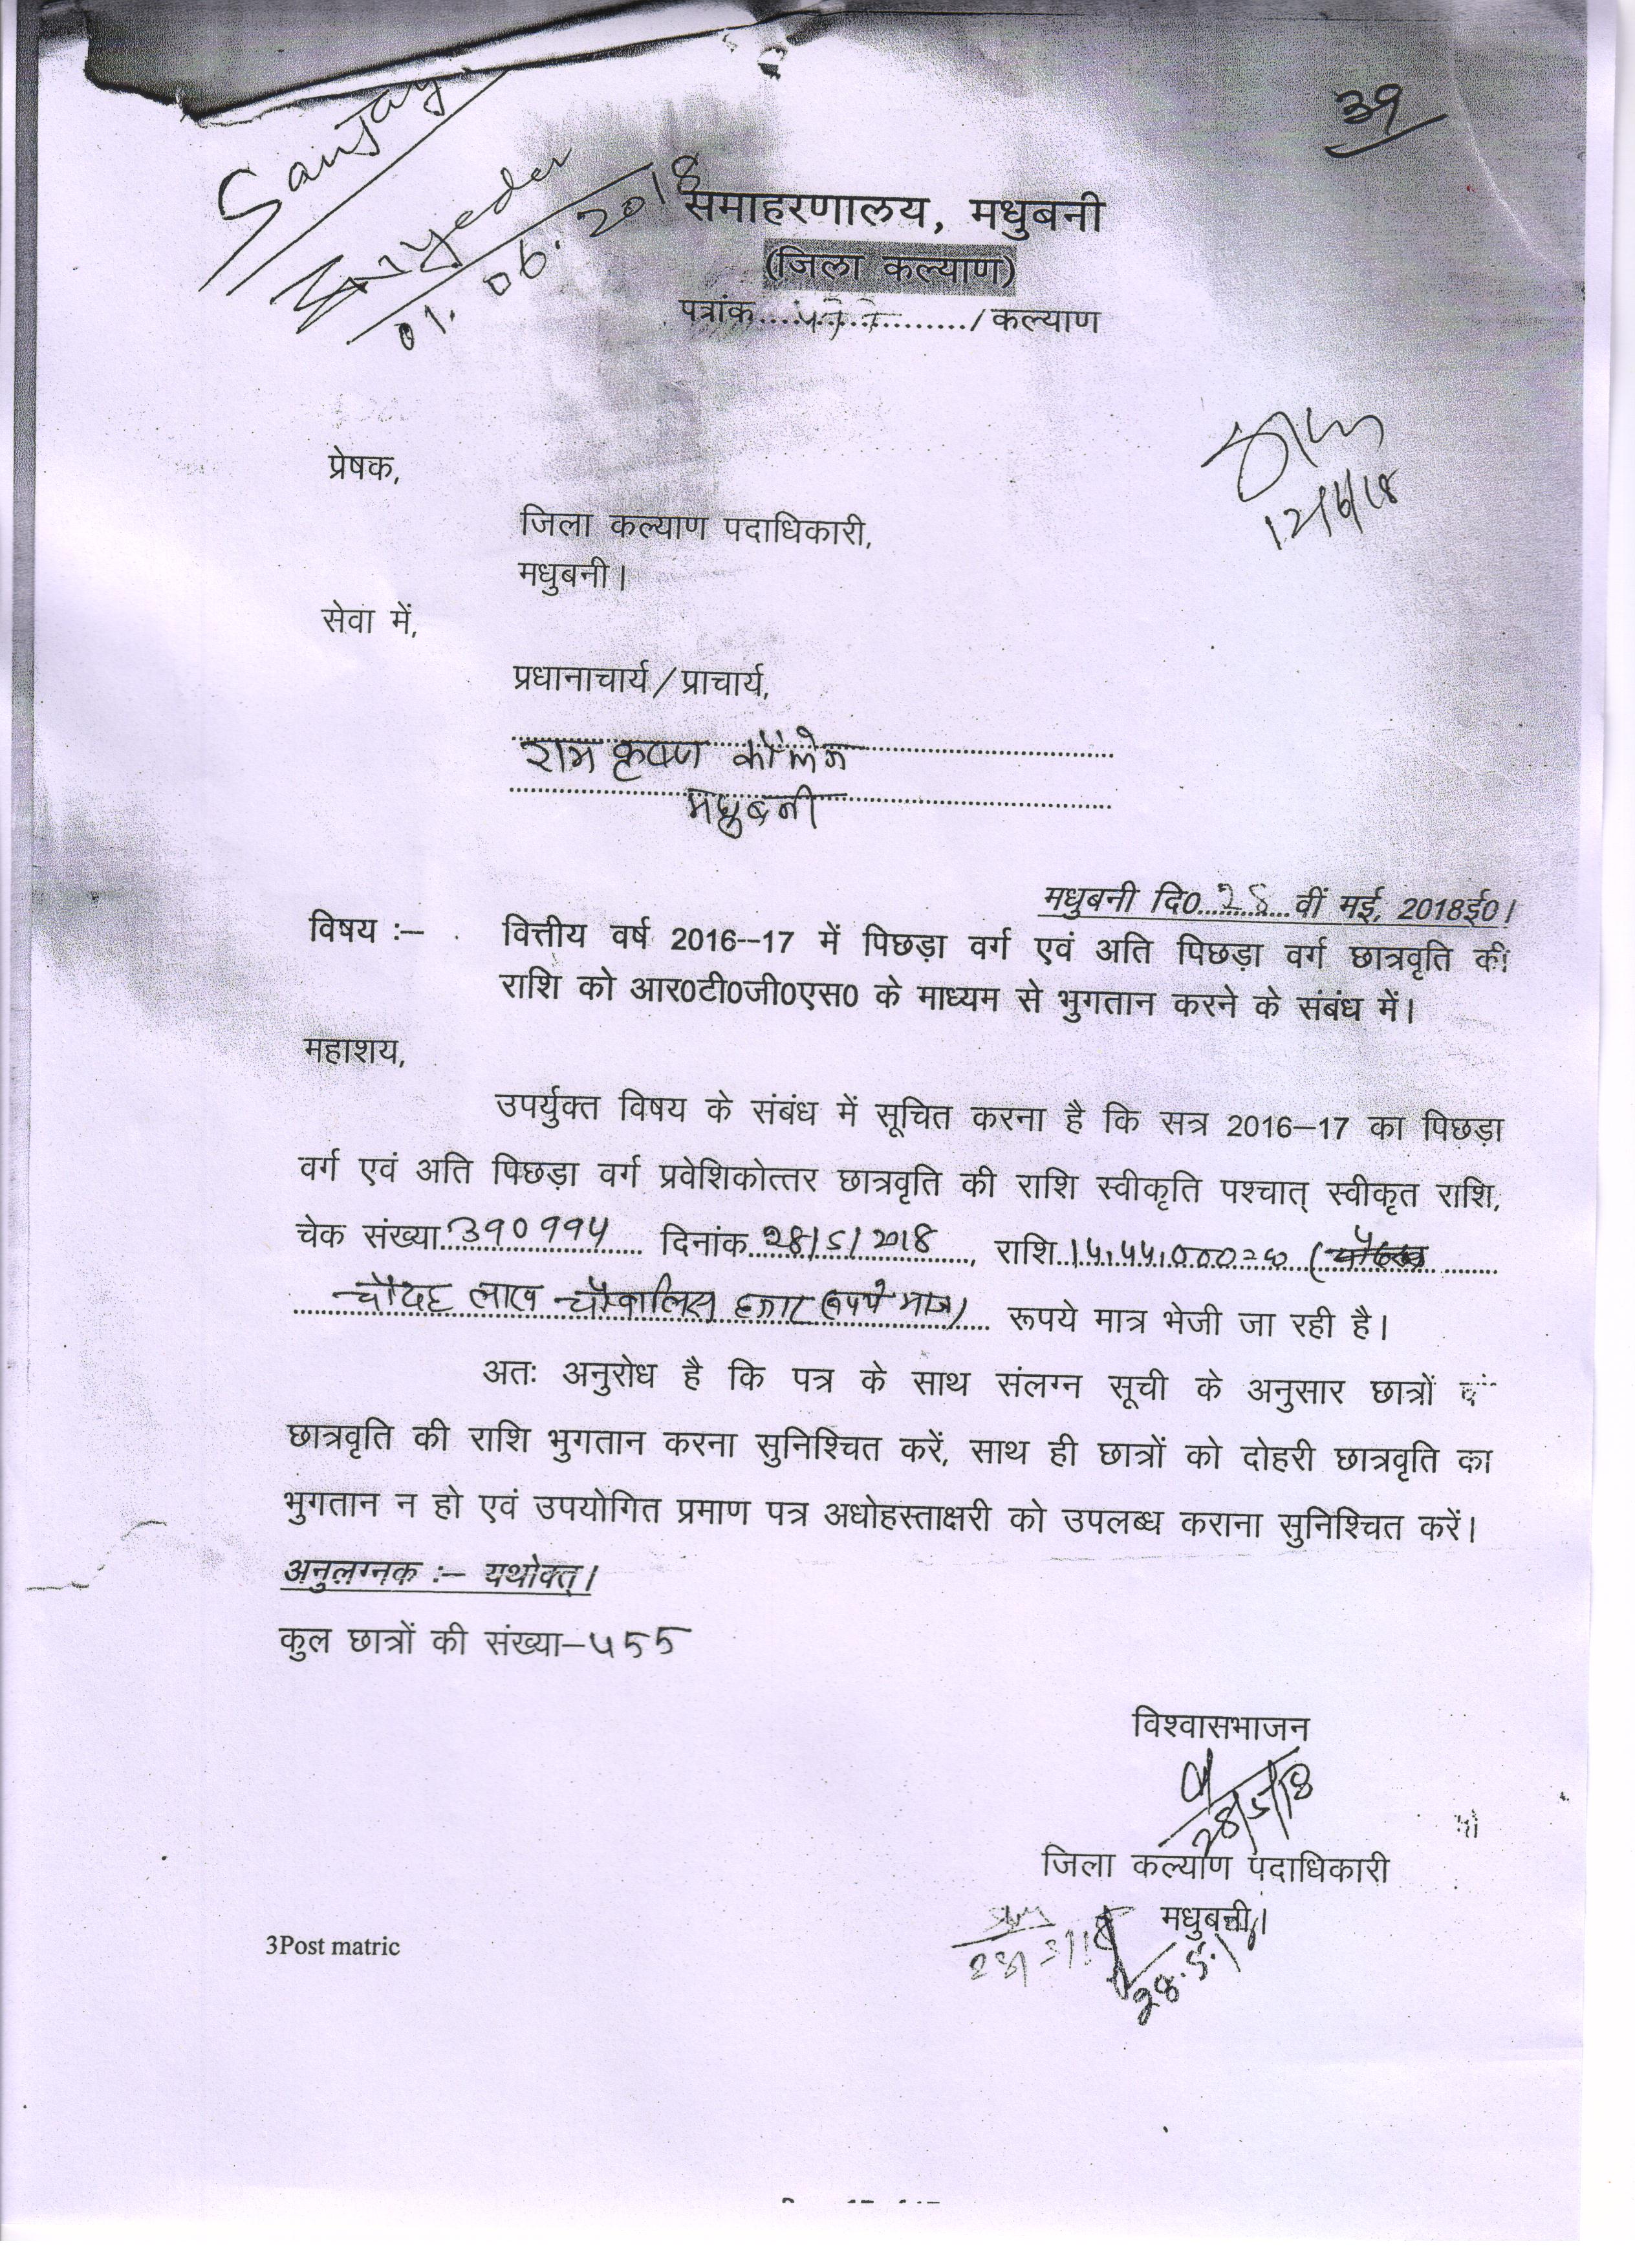 Sanjay
01.06.2018
39
समाहरणालय, मधुबनी
(जिला कल्याण)
पत्रांक..................../कल्याण
12/6/18
प्रेषक,
जिला कल्याण पदाधिकारी,
मधुबनी।
सेवा में,
प्रधानाचार्य/प्राचार्य,
राम कृष्ण कॉलेज
मधुबनी
मधुबनी दि0.28.वीं मई, 2018ई0।
विषय :– वित्तीय वर्ष 2016--17 में पिछड़ा वर्ग एवं अति पिछड़ा वर्ग छात्रवृति की
राशि को आर0टी0जी0एस0 के माध्यम से भुगतान करने के संबंध में।
महाशय,
उपर्युक्त विषय के संबंध में सूचित करना है कि सत्र 2016–17 का पिछड़ा
वर्ग एवं अति पिछड़ा वर्ग प्रवेशिकोत्तर छात्रवृति की राशि स्वीकृति पश्चात् स्वीकृत राशि,
चेक संख्या 390994 दिनांक 28/5/2018, राशि 14,44,000=00 (
चौदह लाख चौवालिस हजार रूपये मात्र) रूपये मात्र भेजी जा रही है।
अतः अनुरोध है कि पत्र के साथ संलग्न सूची के अनुसार छात्रों
छात्रवृति की राशि भुगतान करना सुनिश्चित करें, साथ ही छात्रों को दोहरी छात्रवृति का
भुगतान न हो एवं उपयोगित प्रमाण पत्र अधोहस्ताक्षरी को उपलब्ध कराना सुनिश्चित करें।
अनुलग्नक :– यथोक्त्।
कुल छात्रों की संख्या–455
विश्वासभाजन
28/5/18
जिला कल्याण पदाधिकारी
मधुबनी।
28.5.18
3Post matric